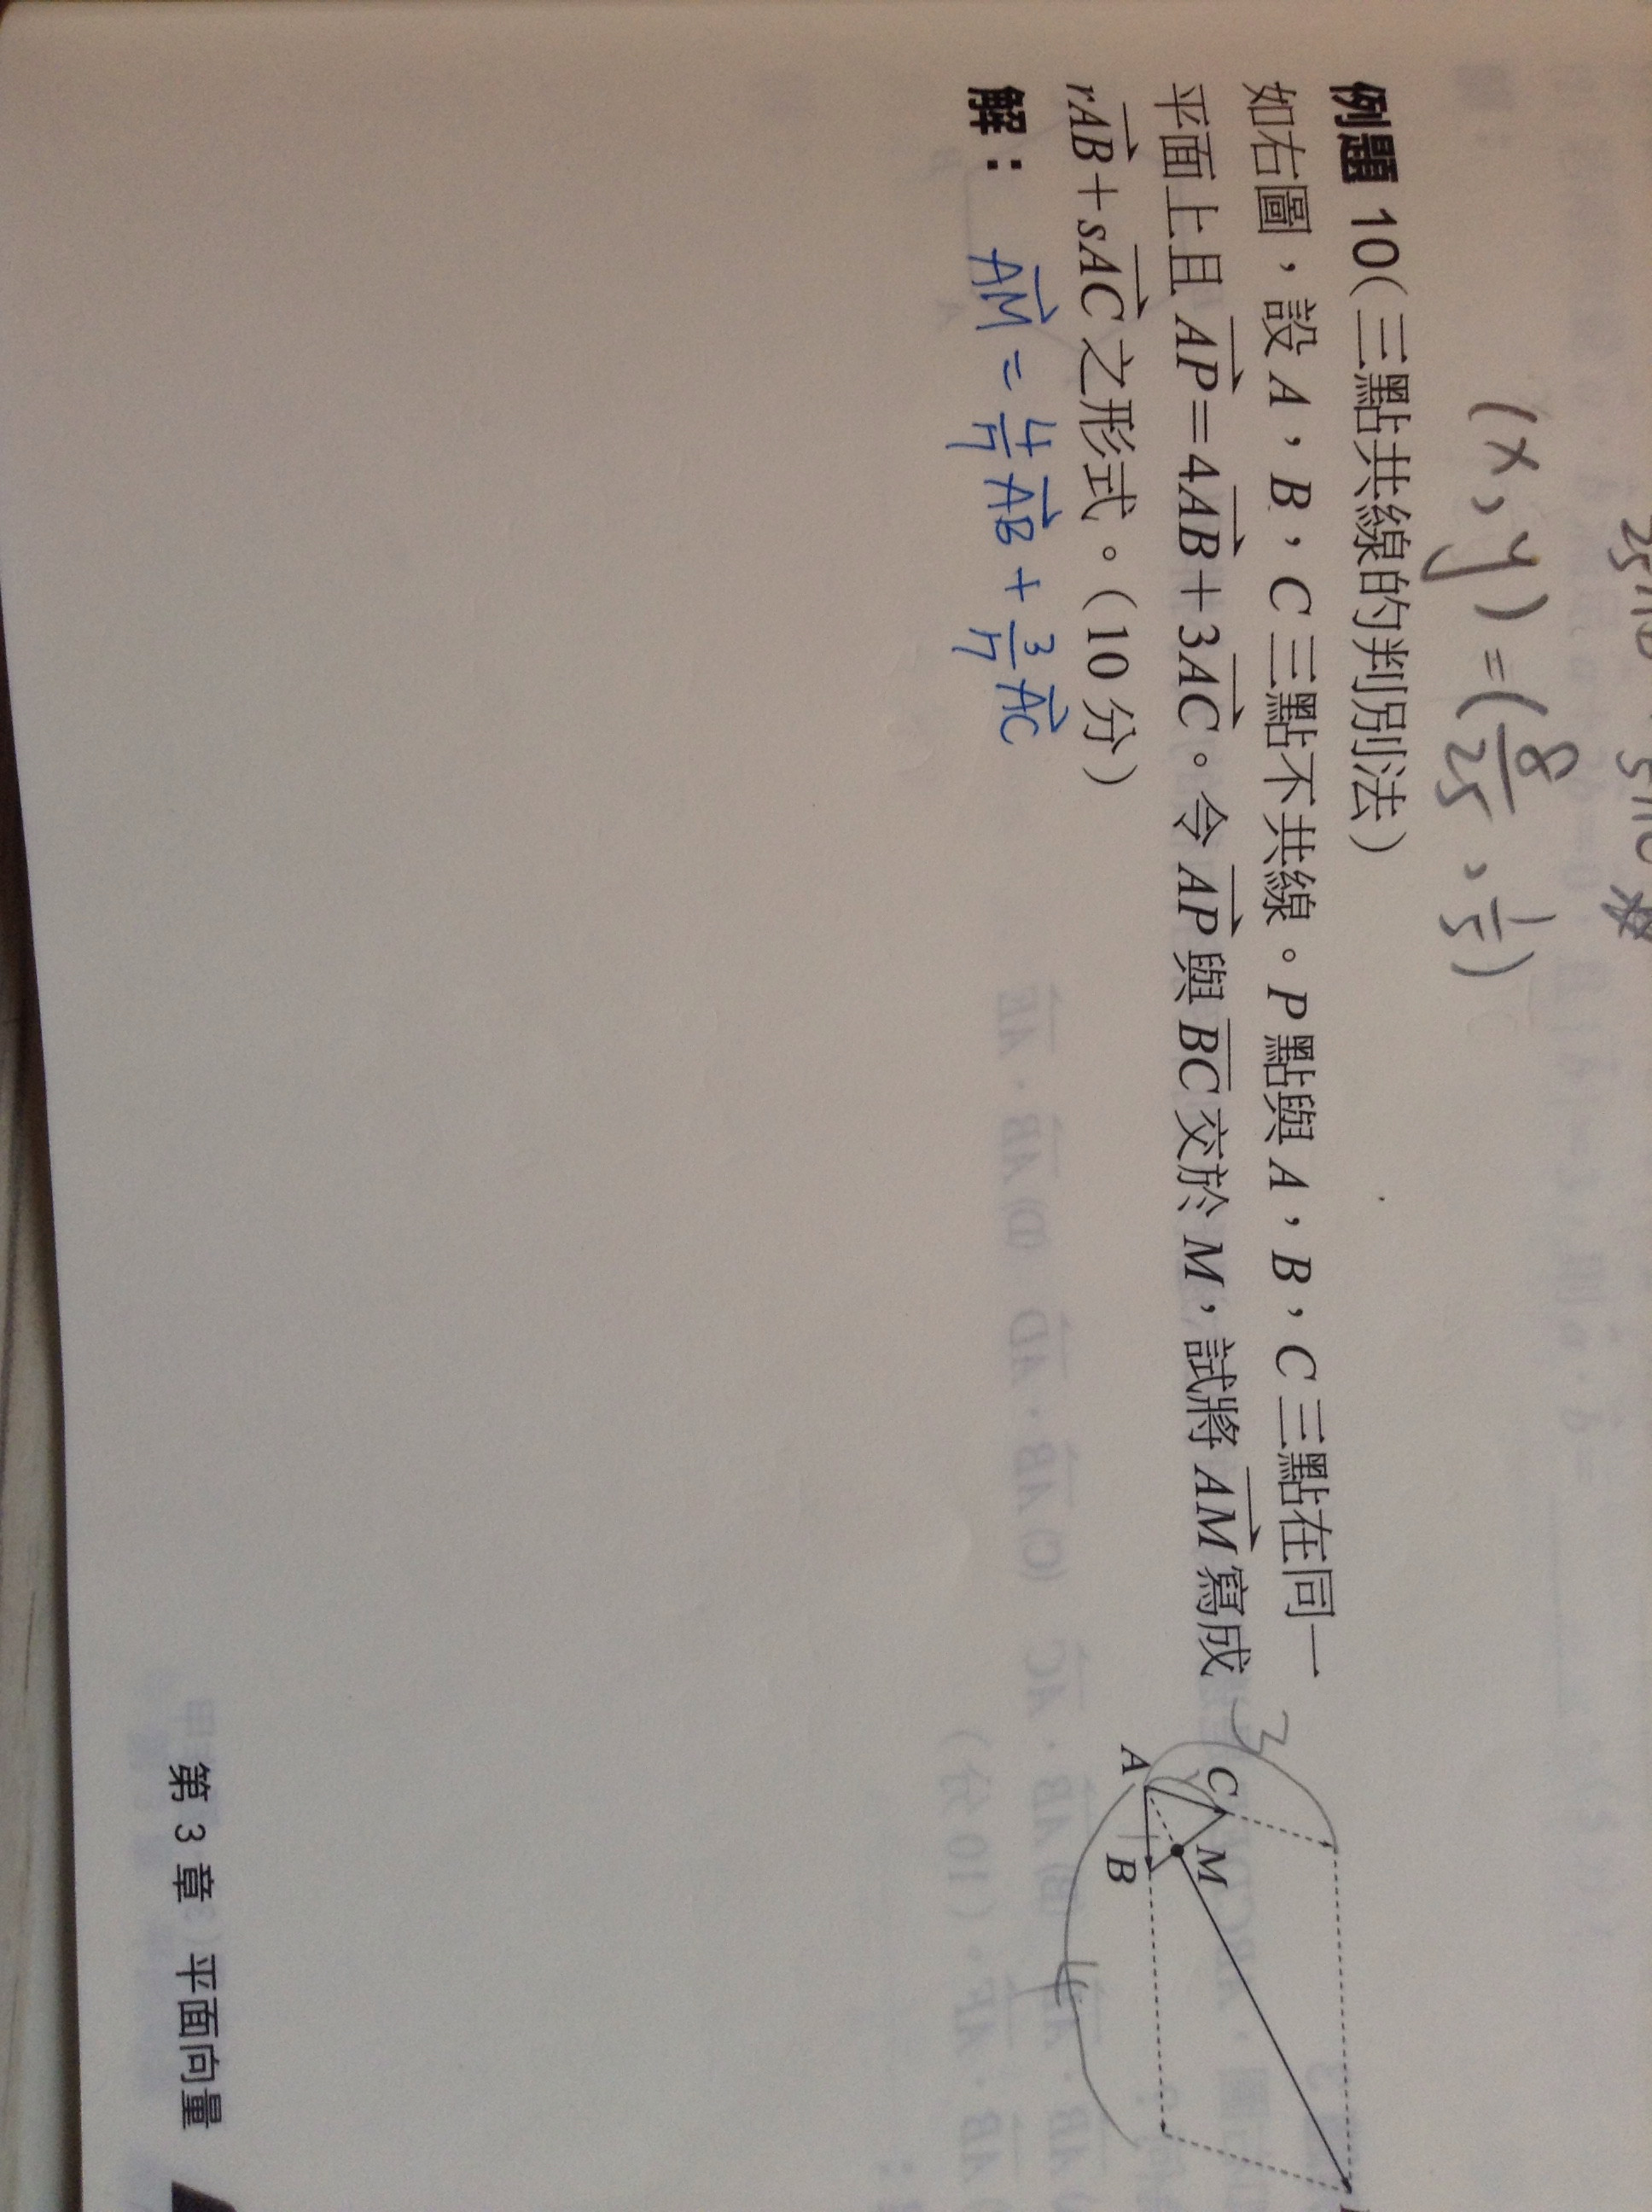 (x,y)=(8/25,1/5)
例題 10(三點共線的判別法)
如右圖,設 A,B,C 三點不共線。P 點與 A,B,C 三點在同一
平面上且 AP=4AB+3AC。令 AP 與 BC 交於 M,試將 AM 寫成
rAB+sAC 之形式。(10 分)
解:AM = 4/7 AB + 3/7 AC
3
C
M
A
B
4
第 3 章 平面向量